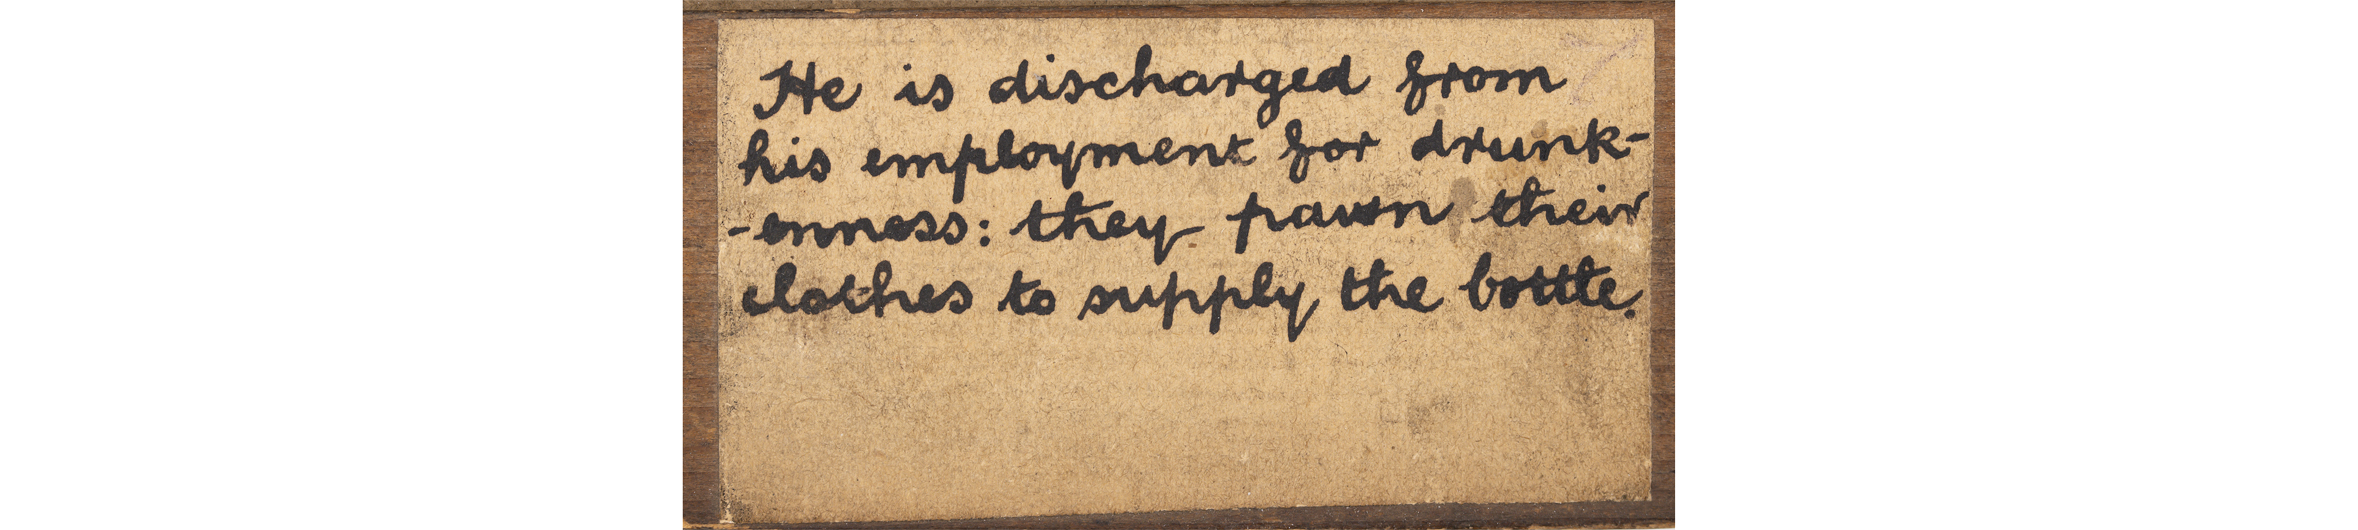 He is discharged from
his employment for drunk-
-enness: they pawn their
clothes to supply the bottle.